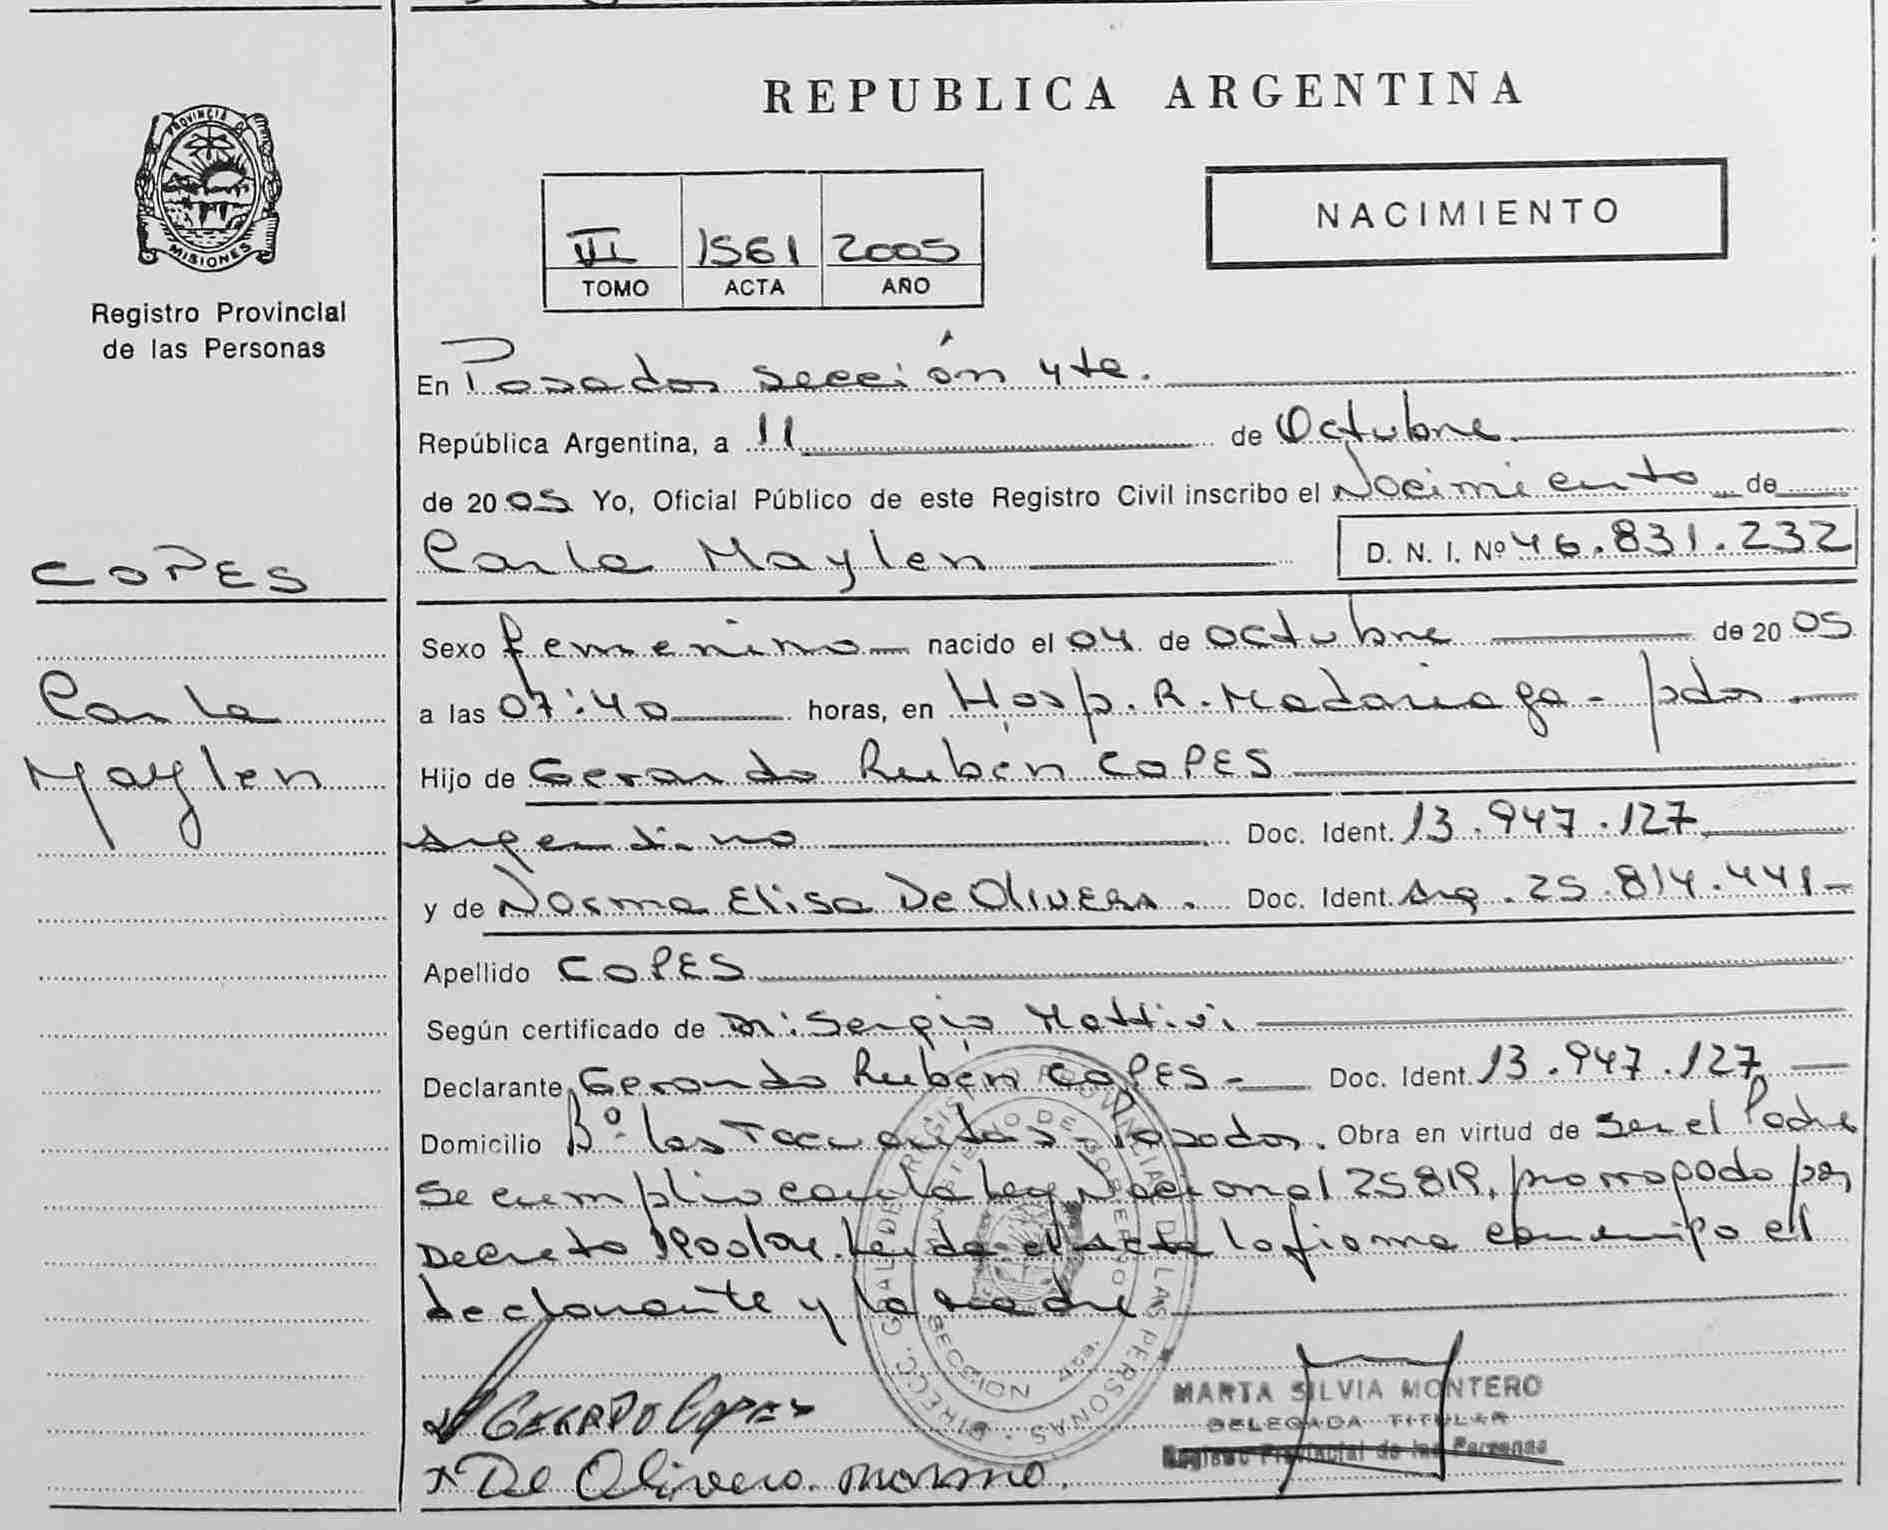 REPUBLICA ARGENTINA
PROVINCIA DE
MISIONES
Registro Provincial
de las Personas
1561 2005
TOMO ACTA AÑO
NACIMIENTO
En Posadas Sección 4ta.
República Argentina, a 11 de Octubre
de 2005 Yo, Oficial Público de este Registro Civil inscribo el Nacimiento de
Carla Maylen D. N. I. Nº 46.831.232
COPES
Carla
Maylen
Sexo femenino nacido el 04 de octubre de 2005
a las 07:40 horas, en Hosp. R. Madariaga - pdas -
Hijo de Gerardo Rubén COPES
Argentino Doc. Ident. 13.947.127
y de Norma Elisa De Olivera. Doc. Ident. Arg. 25.814.441-
Apellido COPES
Según certificado de Dr: Sergio Mattivi
Declarante Gerardo Rubén COPES - Doc. Ident. 13.947.127
Domicilio Bº las Tacuaritas - Posadas. Obra en virtud de ser el Padre
Se cumplio con la Ley Nacional 25819, prorrogado por
Decreto 1900/04. Leida el acta la firma conmigo el
declarante y la madre
DIRECC. GRAL DE REGISTRO PROVINCIAL DE LAS PERSONAS
MINISTERIO DE GOBIERNO
SECCION 4ta.
GERARDO COPES
De Olivera norma
MARTA SILVIA MONTERO
DELEGADA TITULAR
Registro Provincial de las Personas